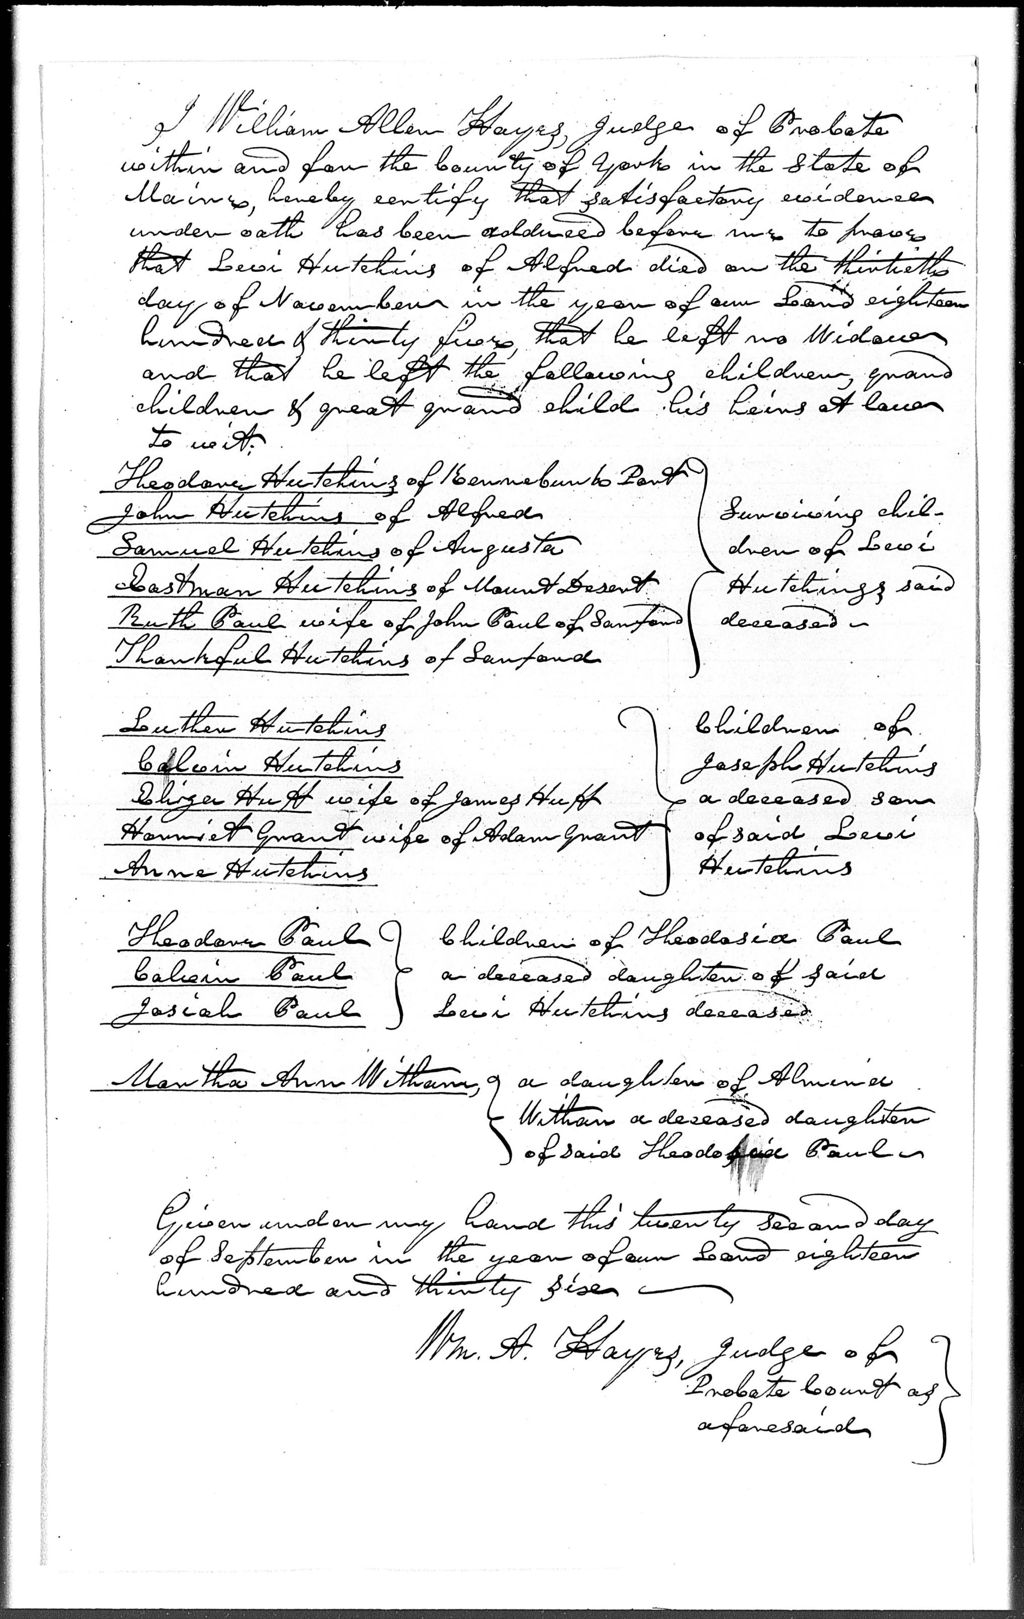 I William Allen Hayes, Judge of Probate
within and for the County of York in the State of
Maine, hereby certify that satisfactory evidence
under oath has been adduced before me to prove
that Levi Hutchins of Alfred died on the thirtieth
day of November in the year of our Lord eighteen
hundred & thirty five, that he left no Widow
and that he left the following children, grand
children & great grand child his heirs at law
to wit;
Theodore Hutchins of Kennebunk Port
John Hutchins of Alfred
Samuel Hutchins of Augusta
Eastman Hutchins of Mount Desert
Ruth Paul wife of John Paul of Sanford
Thankful Hutchins of Sanford
Surviving chil-
dren of Levi
Hutchings said
deceased
Luther Hutchins
Calvin Hutchins
Eliza Huff wife of James Huff
Harriet Grant wife of Adam Grant
Anne Hutchins
Children of
Joseph Hutchins
a deceased son
of said Levi
Hutchins
Theodore Paul
Calvin Paul
Josiah Paul
Children of Theodosia Paul
a deceased daughter of said
Levi Hutchins deceased
Martha Ann Witham, a daughter of Almira
Witham a deceased daughter
of said Theodosia Paul
Given under my hand this twenty second day
of September in the year of our Lord eighteen
hundred and thirty six
Wm. A. Hayes, Judge of
Probate Court as
aforesaid